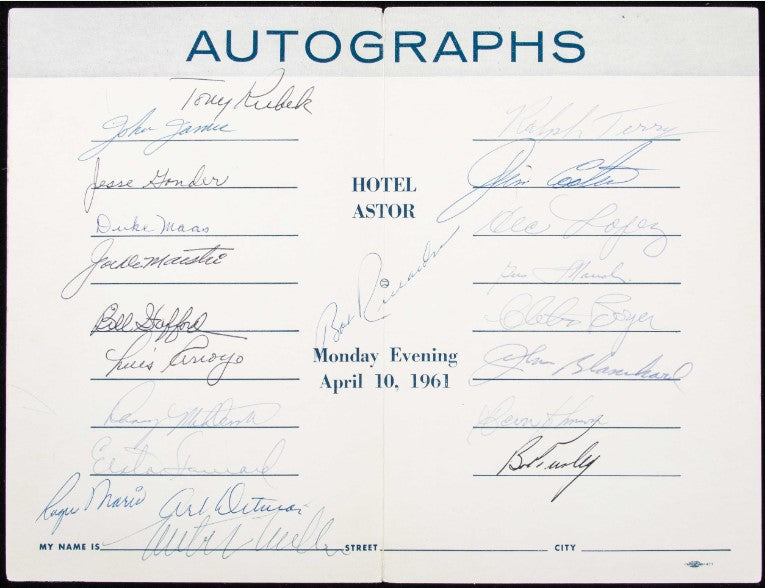 AUTOGRAPHS
Tony Kubek
John James
Jesse Gonder
Duke Maas
Joe DiMaggio
Bill Stafford
Luis Arroyo
Danny McDevitt
Elston Howard
Roger Maris
Art Ditmar
HOTEL
ASTOR
Bob
Monday Evening
April 10, 1961
Ralph Terry
Jim Coates
Hec Lopez
Cletis Boyer
John Blanchard
Deron Johnson
Bob Turley
MY NAME IS
STREET
CITY